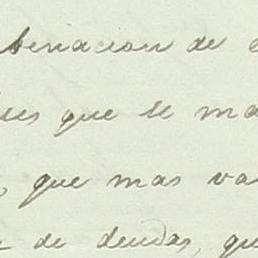 binacion de
que se ma
, que mas va
de deudas, qu